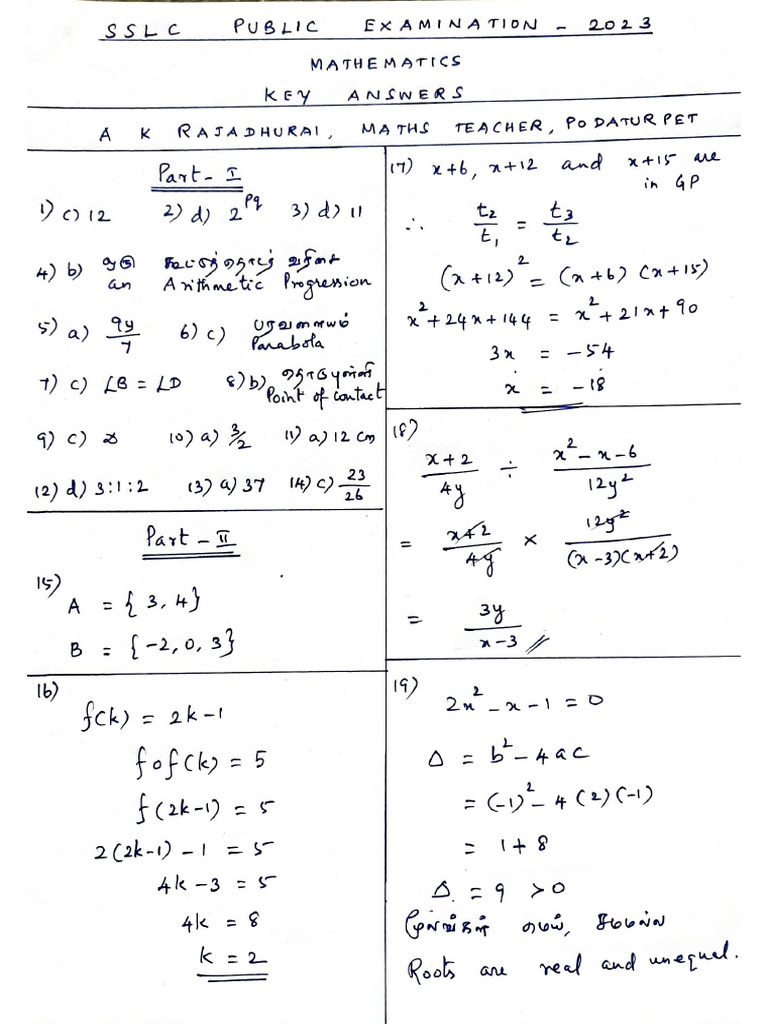 SSLC PUBLIC EXAMINATION - 2023
MATHEMATICS
KEY ANSWERS
A K RAJADHURAI, MATHS TEACHER, PODATURPET
Part - I
1) c) 12 2) d) 2^pq 3) d) 11
4) b) ஒரு கூட்டுத்தொடர் வரிசை
an Arithmetic Progression
5) a) 9y/7 6) c) பரவளையம்
Parabola
7) c) ∠B = ∠D 8) b) தொடுபுள்ளி
Point of contact
9) c) 10) a) 3/2 11) a) 12 cm
12) d) 3:1:2 13) a) 37 14) c) 23/26
Part - II
15)
A = {3, 4}
B = {-2, 0, 3}
16)
f(k) = 2k-1
fof(k) = 5
f(2k-1) = 5
2(2k-1) - 1 = 5
4k - 3 = 5
4k = 8
k = 2
17) x+6, x+12 and x+15 are
in GP
∴ t₂/t₁ = t₃/t₂
(x+12)² = (x+6) (x+15)
x² + 24x + 144 = x² + 21x + 90
3x = -54
x = -18
18)
x+2/4y ÷ x²-x-6/12y²
= x+2/4y × 12y²/(x-3)(x+2)
= 3y/x-3
19)
2x² - x - 1 = 0
Δ = b² - 4ac
= (-1)² - 4(2)(-1)
= 1 + 8
Δ = 9 > 0
மூலங்கள் மெய், சமமல்ல
Roots are real and unequal.